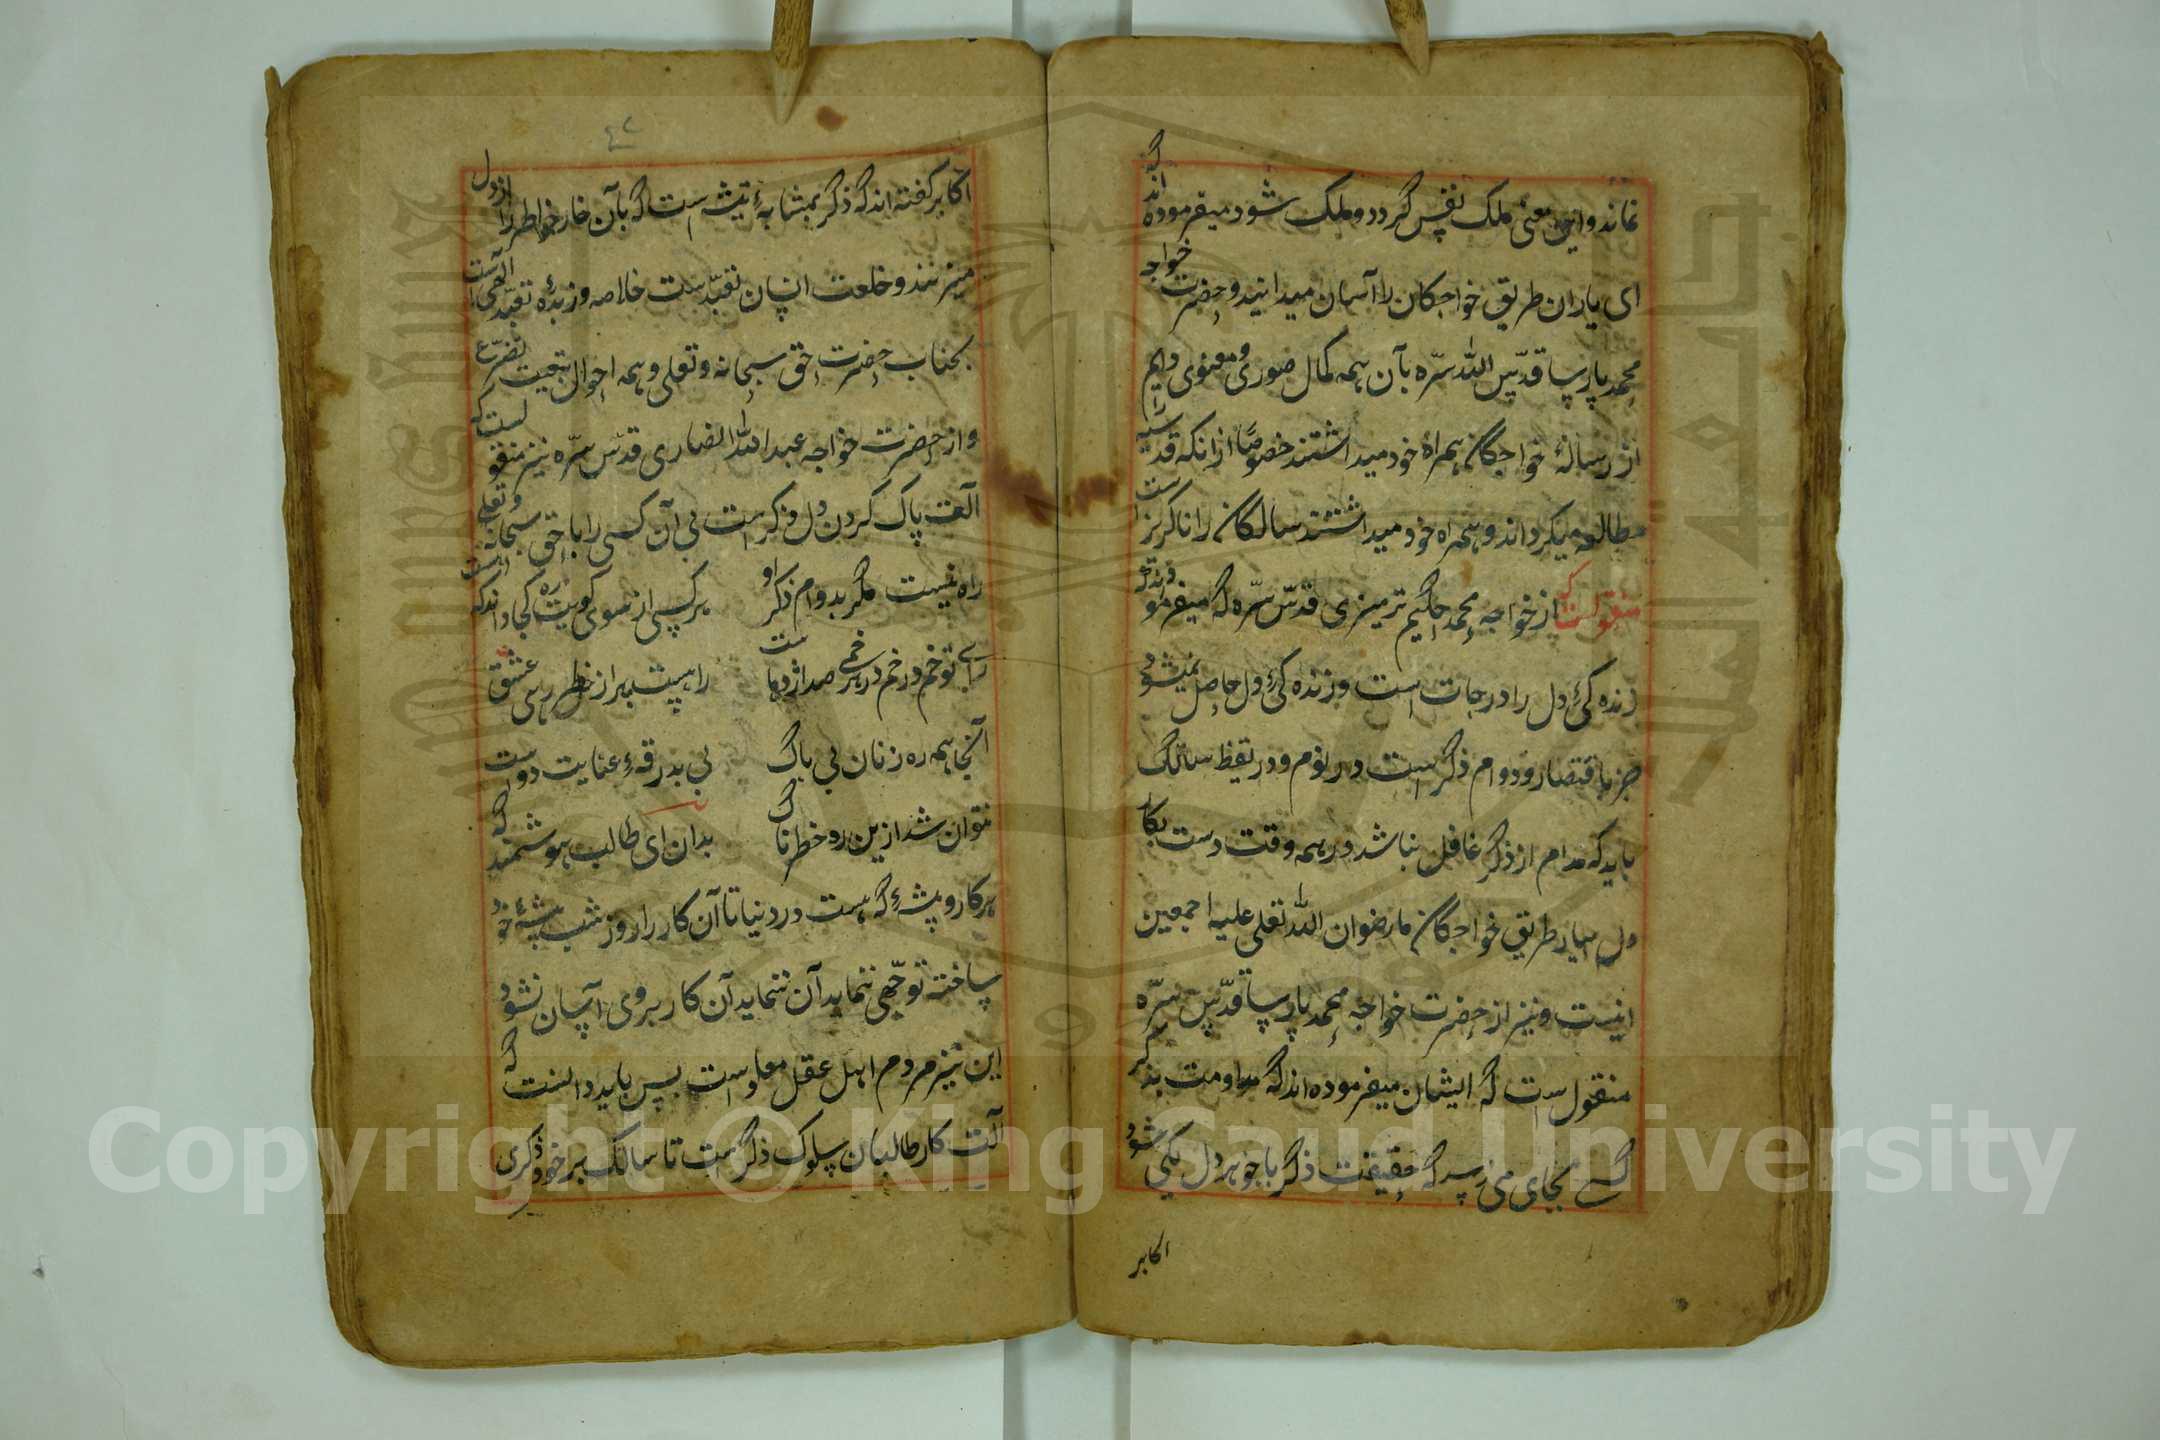 نماند و این معنی ملک نفس گردد و ملک شود میفرموده اند که
ای یاران طریق خواجکان را آسان میدانید و حضرت خواجه
محمد پارسا قدّس اللّه سرّه بآن همه کمال صوری و معنوی دایم
از رسالهٔ خواجگان همراه خود میداشتند خصوصًا ازانکه قدسیه را
مطالعه میکرداند و همراه خود میداشتند سالکان را ناکریز است
منقولست که از خواجه محمد حکیم ترمیزی قدّس سرّه که میفرمودند که
زنده کئ دل را درجات است و زنده کئ دل حاصل نمیشود
جز باقتصار و دوام ذکر است در نوم و در تقیظ سالک
باید که مدام از ذکر غافل نباشد در همه وقت دست بکار
دل بیار طریق خواجگان ما رضوان اللّه تعلی علیه اجمعین
اینست و نیز از حضرت خواجه محمد پارسا قدّس سرّه
منقول است که ایشان میفرموده اند که مداومت بذکر
کسی بجای می رسد که حقیقت ذکر با جوهر دل یکی شود
اکابر
٤٢
اکابر گفته اند که ذکر بمشابهٔ تیشه است که بآن خار خواطر را از دل
میزنند و خلعت انسان تعبّدست خلاصه و زبدهٔ تعبّد آلهی است
بجناب حضرت حق سبحانه و تعلی و همه احوال بنعت تضرّع
و از حضرت خواجه عبد اللّه انصاری قدّس سرّه نیز منقولست که
آلت پاک کردن دل ذکر است بی آن کسی را با حق سبحانه و تعلی
راه نیست مگر بدوام ذکر او هر کسی از سوی کویت ره کجا داند که هست
راه تو خم در خم در هر خمی صد اژدهاست راهیست پر از خطر رهی عشق
آنجا همه ره زنان بی باک بی بدرقهٔ عنایت دوست
نتوان شد ازین ره خطرناک بدان ای طالب هوشمند که
هر کار و پیشهٔ که هست در دنیا تا آن کار را روز شب پیشهٔ خود
ساخته توجّهی ننماید آن ننماید آن کار بروی آسان نشود
این نیز مردم اهل عقل معلومست پس باید دانست که
آلت کار طالبان سلوک ذکر است تا سالک بر خود ذکری
Copyright © King Saud University